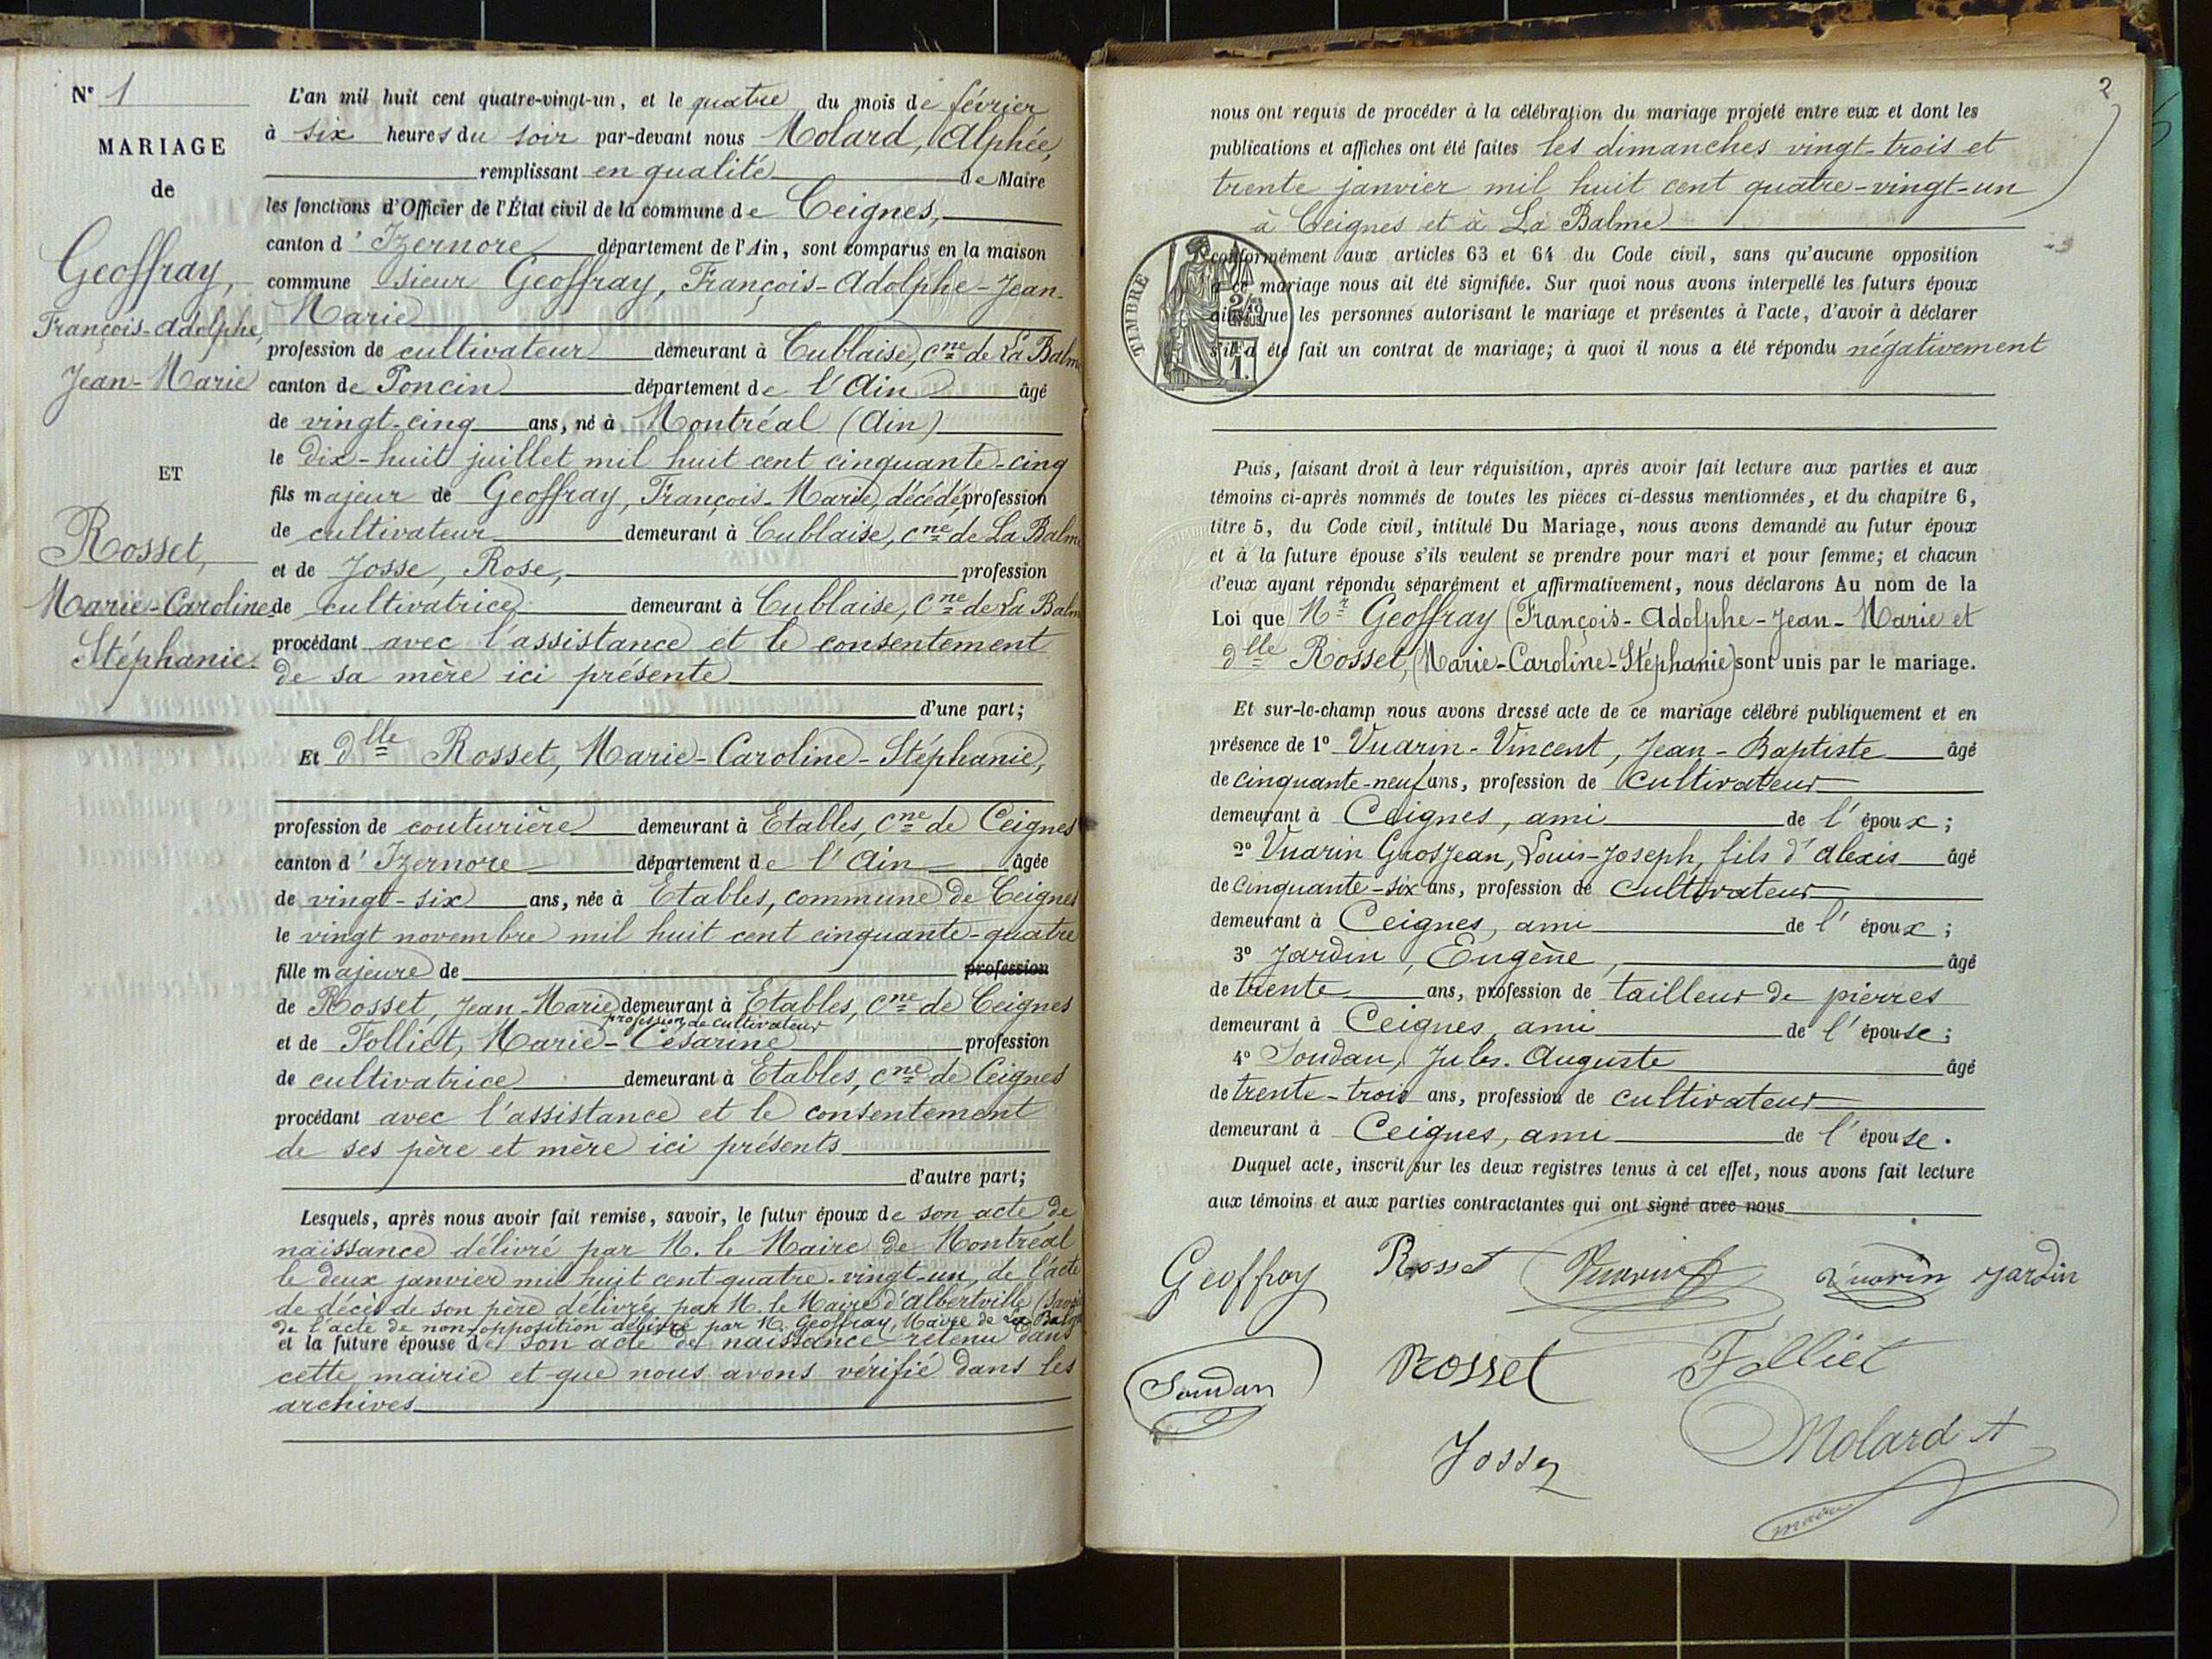 N° 1
MARIAGE
de
Geoffray,
François-Adolphe,
Jean-Marie
ET
Rosset,
Marie-Caroline-
Stéphanie.
L'an mil huit cent quatre-vingt-un, et le quatre du mois de février
à six heures du soir par-devant nous Molard, Alphée,
remplissant en qualité de Maire
les fonctions d'Officier de l'État civil de la commune de Ceignes,
canton d'Izernore département de l'Ain, sont comparus en la maison
commune sieur Geoffray, François-Adolphe-Jean-
Marie
profession de cultivateur demeurant à Cublaise, Cne de La Balme
canton de Poncin département de l'Ain âgé
de vingt-cinq ans, né à Montréal (Ain)
le dix-huit juillet mil huit cent cinquante-cinq
fils majeur de Geoffray, François-Marie, décédé, profession
de cultivateur demeurant à Cublaise, Cne de La Balme
et de Josse, Rose, profession
de cultivatrice demeurant à Cublaise, Cne de La Balme
procédant avec l'assistance et le consentement
de sa mère ici présente
d'une part;
Et Dlle Rosset, Marie-Caroline-Stéphanie,
profession de couturière demeurant à Etables, Cne de Ceignes
canton d'Izernore département de l'Ain âgée
de vingt-six ans, née à Etables, commune de Ceignes
le vingt novembre mil huit cent cinquante-quatre
fille majeure de profession
de Rosset, Jean-Marie demeurant à Etables, Cne de Ceignes
profession de cultivateur
et de Folliet, Marie-Césarine profession
de cultivatrice demeurant à Etables, Cne de Ceignes
procédant avec l'assistance et le consentement
de ses père et mère ici présents
d'autre part;
Lesquels, après nous avoir fait remise, savoir, le futur époux de son acte de
naissance délivré par M. le Maire de Montréal
le deux janvier mil huit cent quatre-vingt-un, de l'acte
de décès de son père délivrée par M. le Maire d'Albertville (Savoie
de l'acte de non-opposition délivré par M. Geoffray, Maire de La Balme
et la future épouse de son acte de naissance retenu dans
cette mairie et que nous avons vérifié dans les
archives
2
nous ont requis de procéder à la célébration du mariage projeté entre eux et dont les
publications et affiches ont été faites les dimanches vingt-trois et
trente janvier mil huit cent quatre-vingt-un
à Ceignes et à La Balme
conformément aux articles 63 et 64 du Code civil, sans qu'aucune opposition
à ce mariage nous ait été signifiée. Sur quoi nous avons interpellé les futurs époux
ainsi que les personnes autorisant le mariage et présentes à l'acte, d'avoir à déclarer
s'il a été fait un contrat de mariage; à quoi il nous a été répondu négativement
TIMBRE
1.
Puis, faisant droit à leur réquisition, après avoir fait lecture aux parties et aux
témoins ci-après nommés de toutes les pièces ci-dessus mentionnées, et du chapitre 6,
titre 5, du Code civil, intitulé Du Mariage, nous avons demandé au futur époux
et à la future épouse s'ils veulent se prendre pour mari et pour femme; et chacun
d'eux ayant répondu séparément et affirmativement, nous déclarons Au nom de la
Loi que Mr Geoffray (François-Adolphe-Jean-Marie et
dlle Rosset, (Marie-Caroline-Stéphanie) sont unis par le mariage.
Et sur-le-champ nous avons dressé acte de ce mariage célébré publiquement et en
présence de 1° Vuarin-Vincent, Jean-Baptiste âgé
de cinquante-neuf ans, profession de cultivateur
demeurant à Ceignes, ami de l'époux;
2° Vuarin Grosjean, Louis-Joseph, fils d'Alexis âgé
de cinquante-six ans, profession de cultivateur
demeurant à Ceignes, ami de l'époux;
3° Jardin, Eugène, âgé
de trente ans, profession de tailleur de pierres
demeurant à Ceignes, ami de l'épouse;
4° Soudan, Jules-Auguste âgé
de trente-trois ans, profession de cultivateur
demeurant à Ceignes, ami de l'épouse.
Duquel acte, inscrit sur les deux registres tenus à cet effet, nous avons fait lecture
aux témoins et aux parties contractantes qui ont signé avec nous
Geoffray Rosset Vuarin Vuarin Jardin
Soudan Rosset Folliet
Josse Molard A
maire